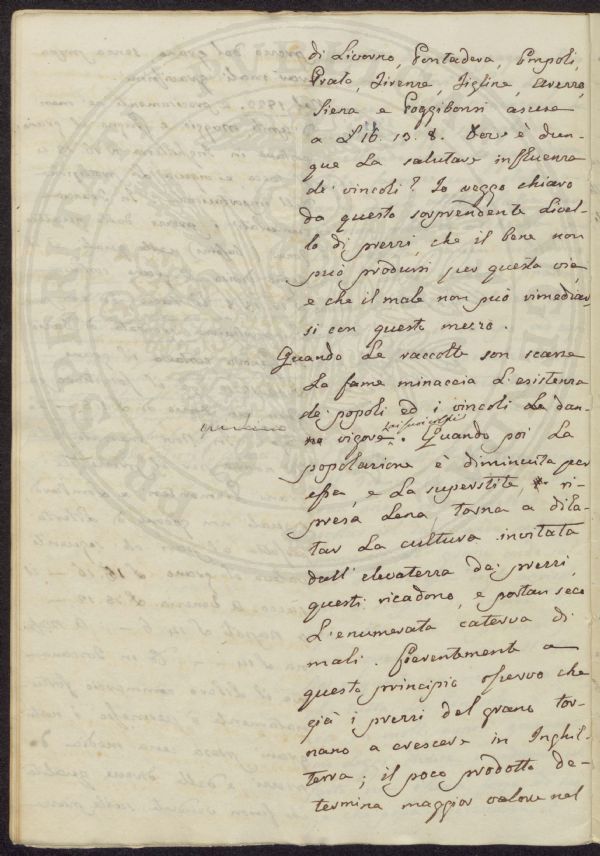 di Livorno, Pontadera, Empoli,
Prato, Firenze, Figline, Arezzo,
Siena e Poggibonsi ascese
a £ 16. 13. 8. Dov'è dun-
que la salutare influenza
de' vincoli? Io veggo chiaro
da questo sorprendente livel-
lo di prezzi, che il bene non
può produrssi per questa via,
e che il male non può rimediar-
si con questo mezzo.
Quando le raccolte son scarse
la fame minaccia l'esistenza
de' popoli ed i vincoli le dan-
no vigore. Quando poi la
popolazione è diminuita per
essa, e la superstite, ri-
presa lena, torna a dila-
tar la cultura invitata
dall'elevatezza de' prezzi,
questi ricadono, e portan seco
l'enumerata caterva di
mali. Coerentemente a
questo principio osservo che
già i prezzi del grano tor-
nano a crescere in Inghil-
terra; il poco prodotto de-
termina maggior valore nel